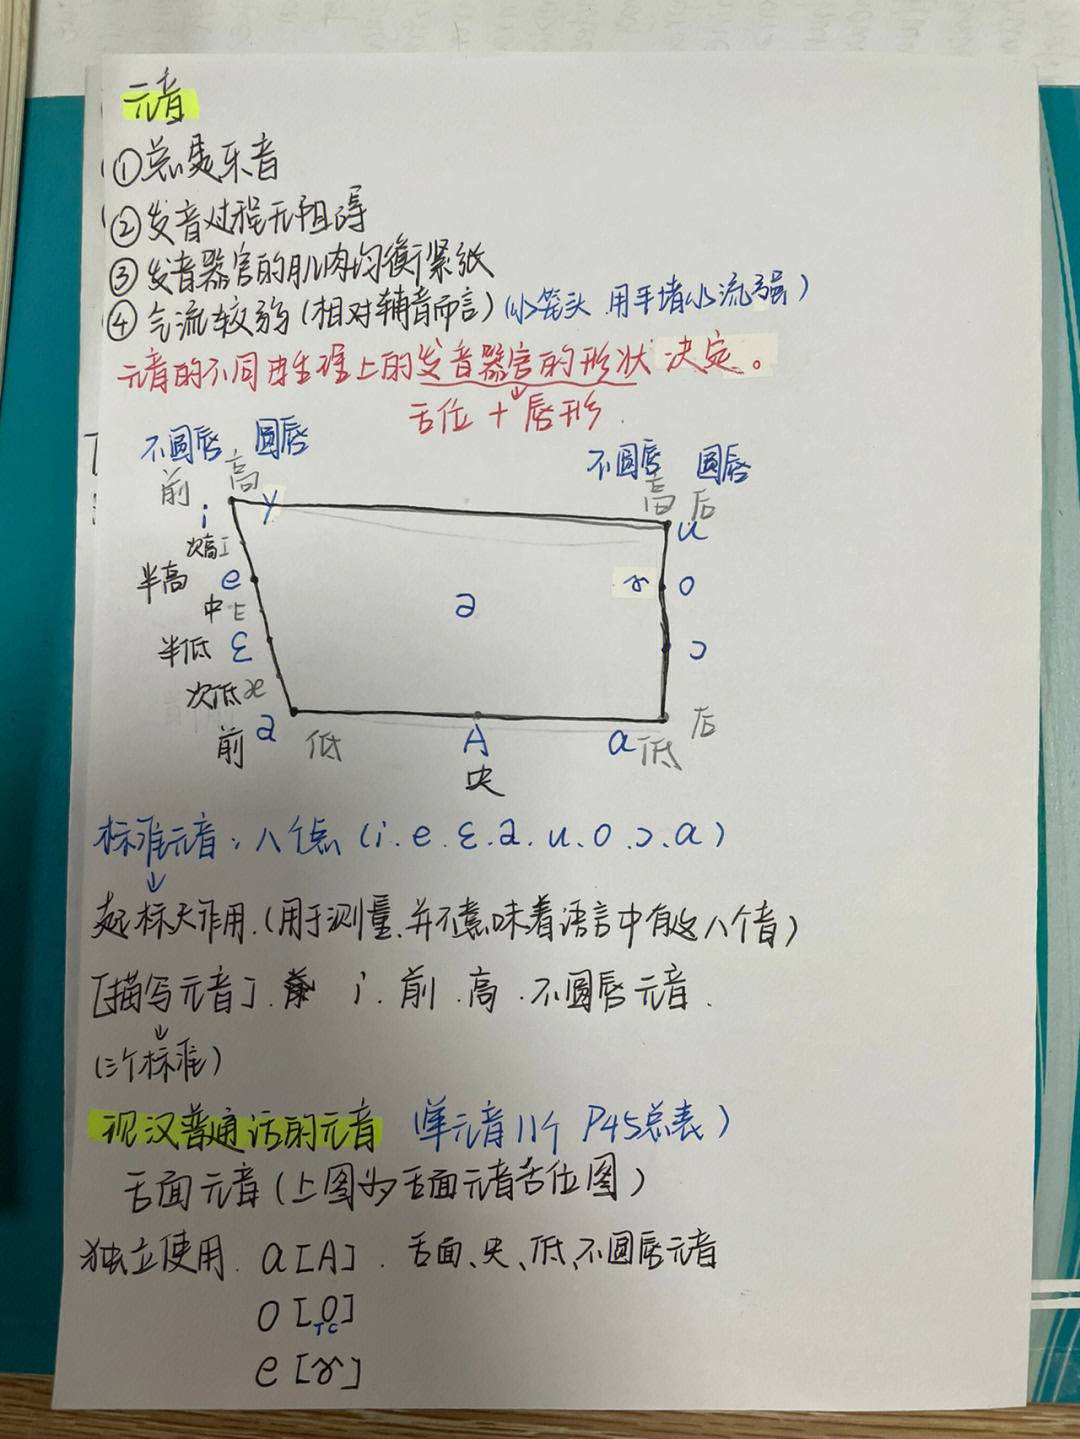 元音
①总是乐音
②发音过程无阻碍
③发音器官的肌肉均衡紧张
④气流较弱(相对辅音而言)(水笼头.用手堵水流强)
元音的不同由生理上的发音器官的形状 决定。
舌位 + 唇形.
不圆唇 圆唇 不圆唇 圆唇
前 高 高 后
i y u
次高 I
半高 e ɤ o
中 E ə
半低 ε ɔ
次低 æ
前 a 低 A ɑ 低 后
央
标准元音: 八个点 (i. e. ε. a. u. o. ɔ. ɑ)
↓
起标尺作用.(用于测量.并不意味着语言中有这八个音)
[描写元音]. i. 前.高.不圆唇元音.
↓
(三个标准)
现汉普通话的元音 (单元音11个 P45总表)
舌面元音(上图为舌面元音舌位图)
独立使用. ɑ[A]. 舌面、央、低、不圆唇元音
o [o̞]
e [ɤ]